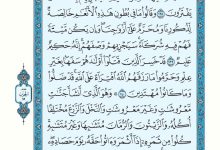 يَفْتَرُونَ وَقَالُوا۟ مَا فِى بُطُونِ هَٰذِهِ ٱلْأَنْعَٰمِ خَالِصَةٌ
لِّذُكُورِنَا وَمُحَرَّمٌ عَلَىٰٓ أَزْوَٰجِنَا وَإِن يَكُن مَّيْتَةً
فَهُمْ فِيهِ شُرَكَآءُ سَيَجْزِيهِمْ وَصْفَهُمْ إِنَّهُۥ حَكِيمٌ
عَلِيمٌ قَدْ خَسِرَ ٱلَّذِينَ قَتَلُوٓا۟ أَوْلَٰدَهُمْ سَفَهًۢا بِغَيْرِ
عِلْمٍ وَحَرَّمُوا۟ مَا رَزَقَهُمُ ٱللَّهُ ٱفْتِرَآءً عَلَى ٱللَّهِ قَدْ ضَلُّوا۟
وَمَا كَانُوا۟ مُهْتَدِينَ وَهُوَ ٱلَّذِىٓ أَنشَأَ جَنَّٰتٍ
مَّعْرُوشَٰتٍ وَغَيْرَ مَعْرُوشَٰتٍ وَٱلنَّخْلَ وَٱلزَّرْعَ مُخْتَلِفًا
أُكُلُهُۥ وَٱلزَّيْتُونَ وَٱلرُّمَّانَ مُتَشَٰبِهًا وَغَيْرَ مُتَشَٰبِهٍ
كُلُوا۟ مِن ثَمَرِهِۦٓ إِذَآ أَثْمَرَ وَءَاتُوا۟ حَقَّهُۥ يَوْمَ حَصَادِهِۦ